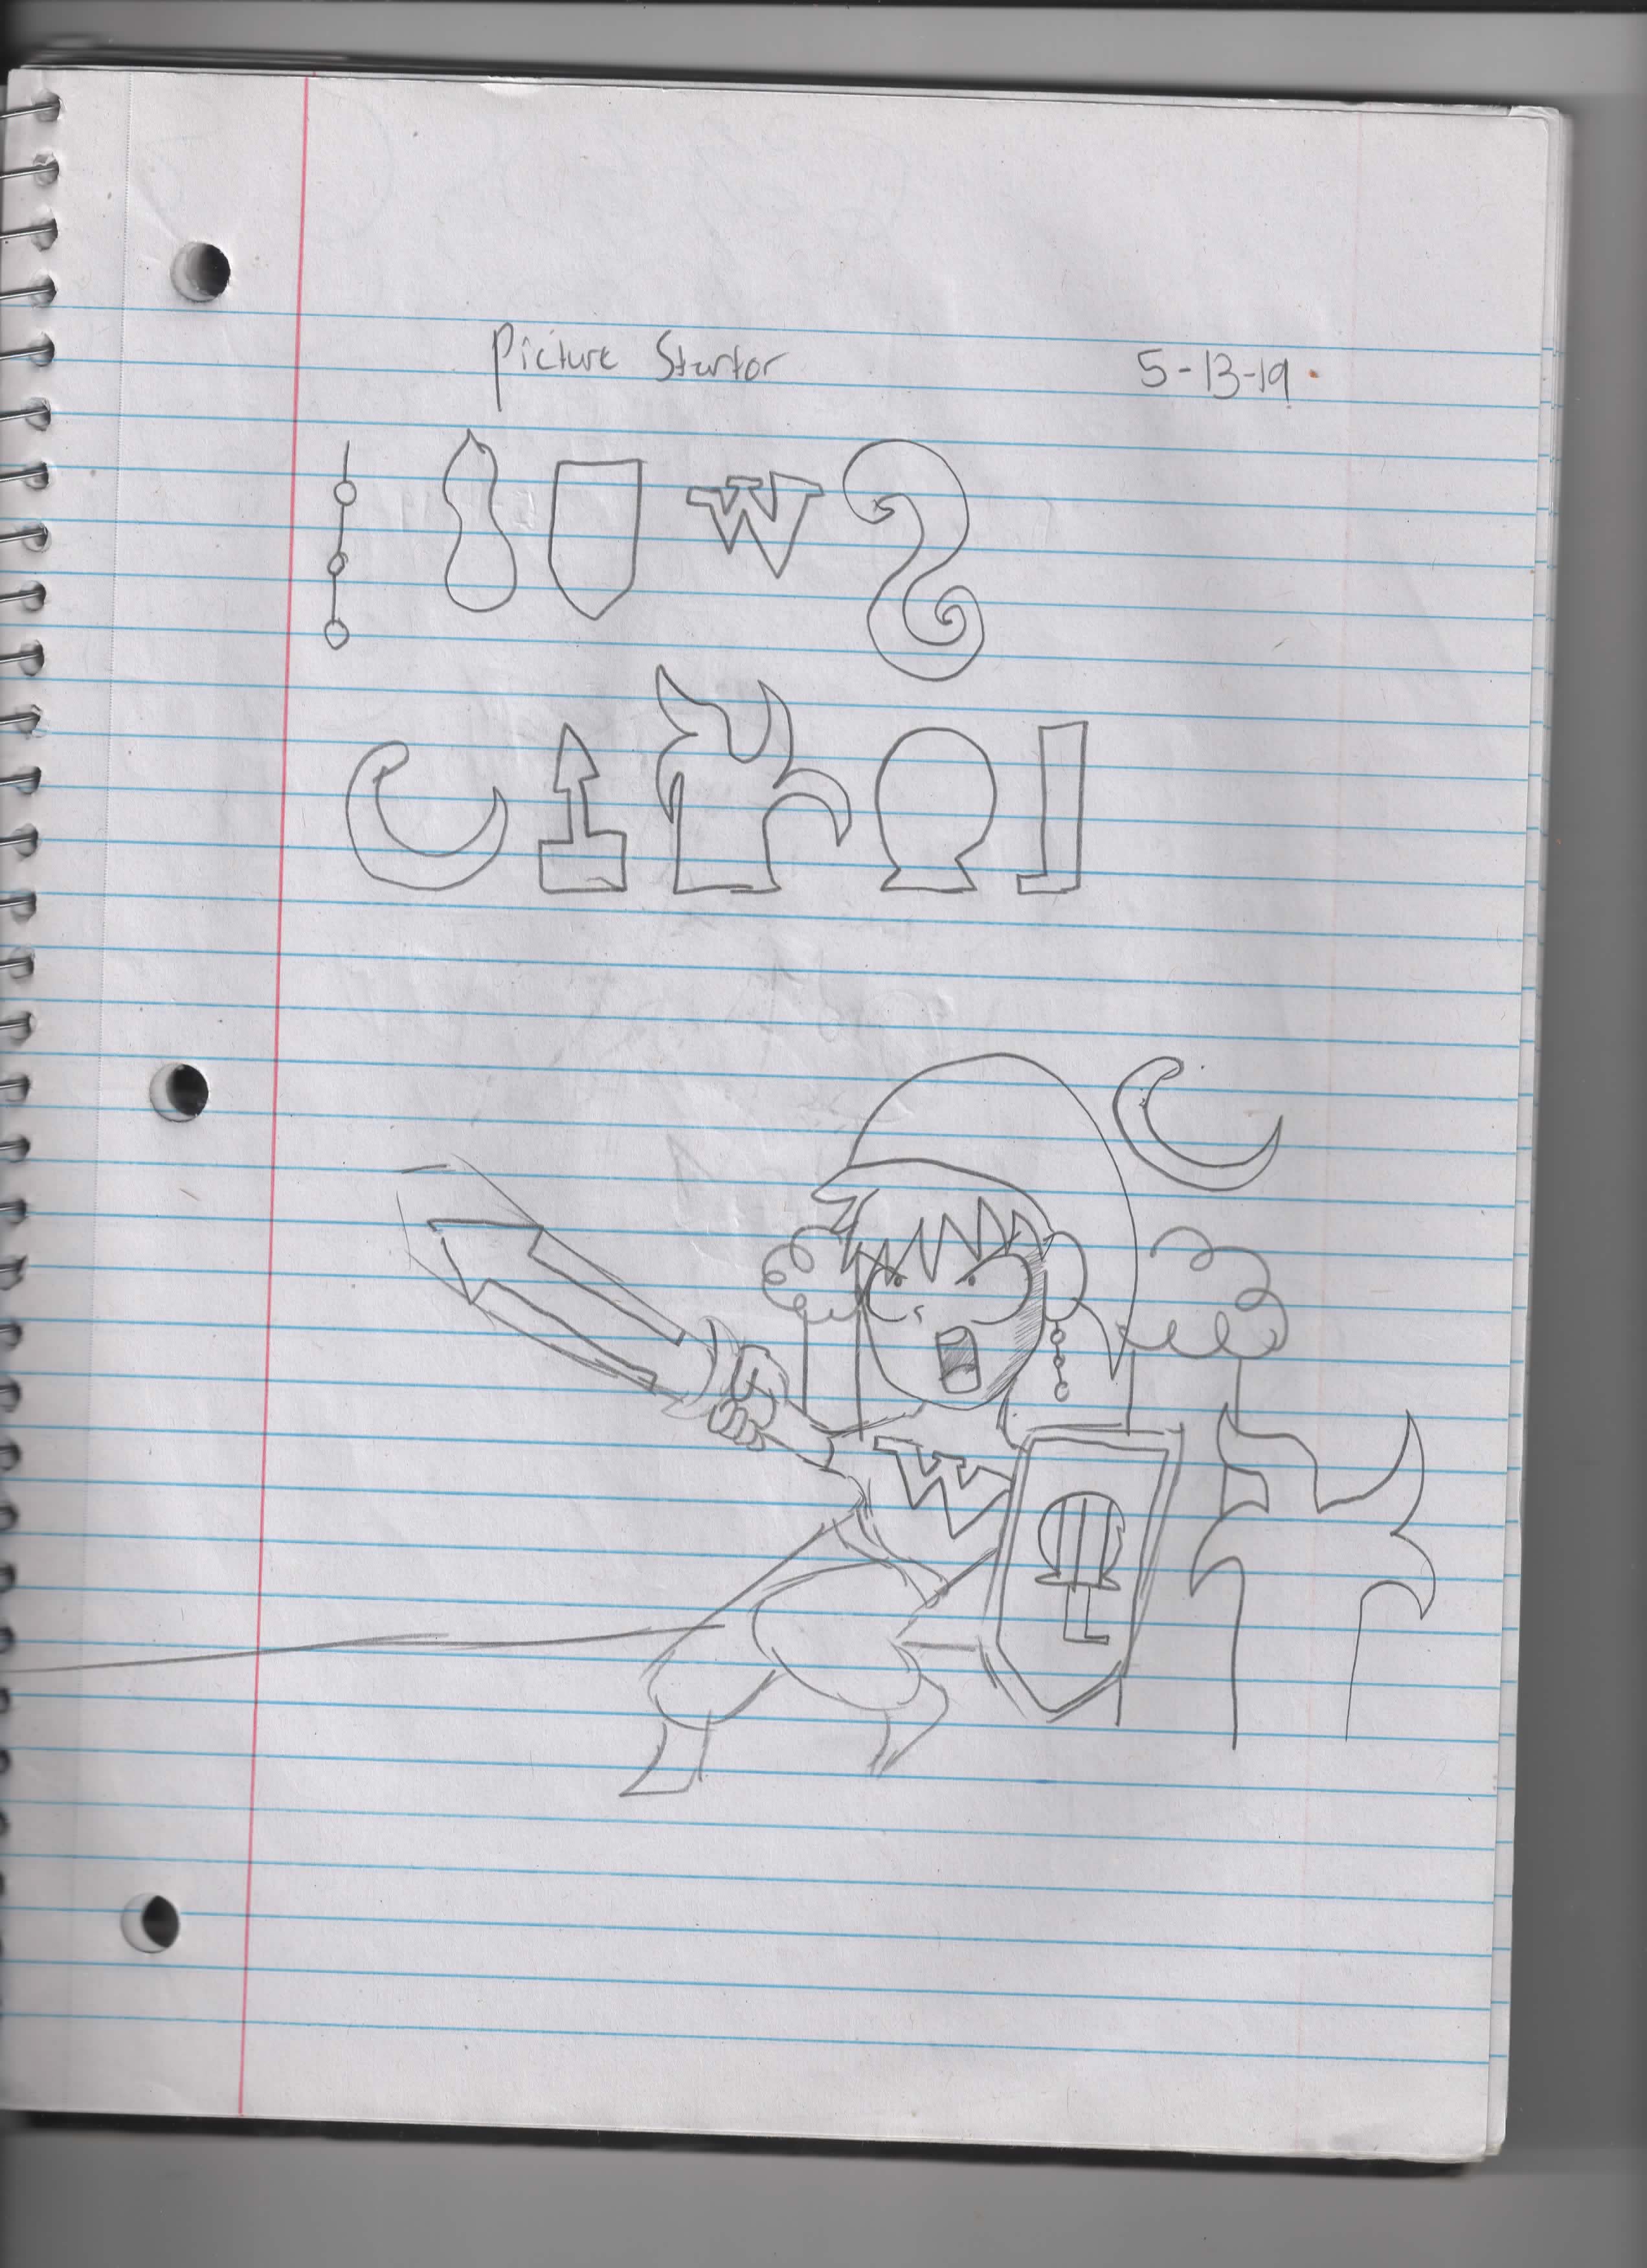 Picture Startor 5-13-19
W
W